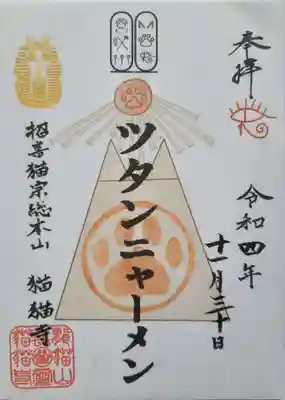 奉拝
令和四年
十一月三十日
ツタンニャーメン
招喜猫宗総本山 猫猫寺